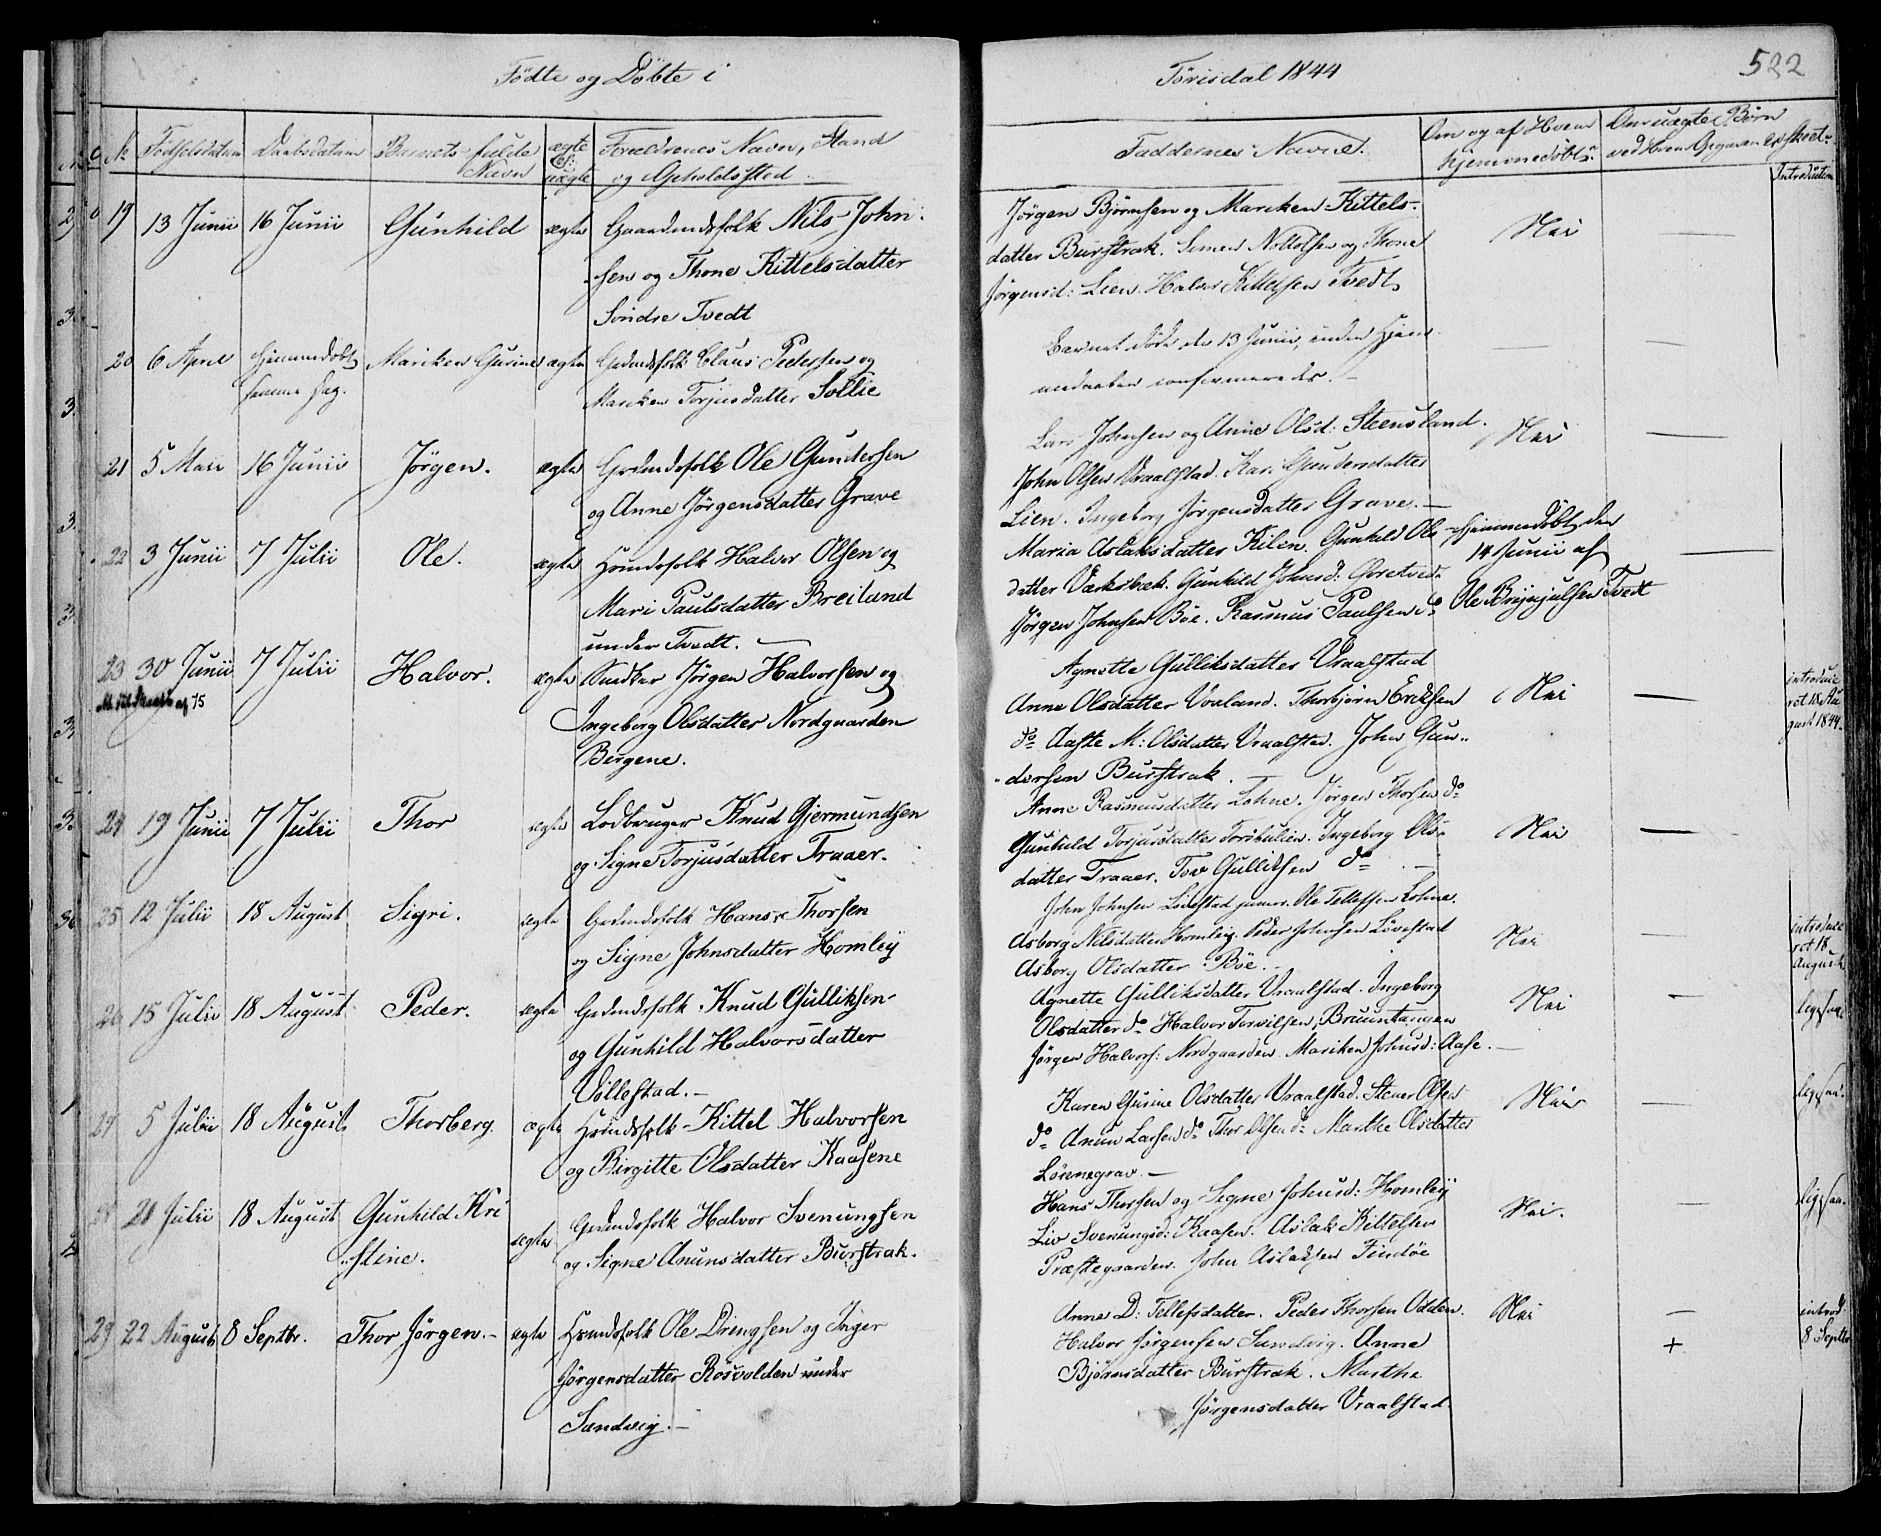 Födte og Döbte i Törisdal 1844 522
No Födselsdatum Daabsdatum Barnets fulde Navn ægte el: uægte Forældrenes Navn, Stand og Opholdssted
Faddernes Navne. Om og af Hvem hjemmedöbt Om uægte Börn ved Hvem Opgaven er skeet Introduction
19 13 Junii 16 Junii Gunhild ægte Gaardmdsfolk Nils John
sen og Thone Kittelsdatter
Söndre Tvedt
Jörgen Björnsen og Mariken Kittels-
datter Burstrak. Simen Nottolfsen og Thone
Jörgensd: Lien. Halvor Kittelsen Tvedt
Nei —
20 6 April Hjemmedöbt Mariken Gurine ægte Grdmdsfolk Claus Pedersen og
samme Dag. Mariken Torjusdatter Sollie
Barnet döde den 13 Junii, inden Hjem
medaaben confirmeredes. —
21 5 Maii 16 Junii Jörgen. ægte Grdmdsfolk Ole Gundersen
og Anne Jörgensdatter Grave
Lars Johnsen og Anne Olsd: Steensland.
John Olsen Vraalstad. Kari Gundersdatter
Lien. Ingeborg Jörgensdatter Grave. —
Nei —
22 3 Junii 7 Julii Ole. ægte Hsmdsfolk Halvor Olsen og
Mari Paulsdatter Breiland
under Tvedt. —
Maria Aslaksdatter Kilen. Gunhild Ols
datterVærksbæk. Gunhild Johnsd:
Jörgen Johnsen Böe. Rasmus Paulsen do
Hjemmedöbt den
14 Junii af
Ole Brynjulsen Tvedt
23 30 Junii 7 Julii Halvor. ægte Jörgen Halvorsen og
75
Ingeborg Olsdatter Nordgaarden
Bergene.
Agnette Gulliksdatter Vraalstad
Anne Olsdatter Voxland. Thorbjörn Eriksen
do Aaste M: Olsdatter Vraalstad. John Gun-
dersen Burstrak.
Nei —
introduce
ret 18 Au
gust 1844.
24 19 Junii 7 Julii Thor ægte Lodbruger Knud Gjermundsen
og Signe Torjusdatter Traaer.
Anne Rasmusdatter Lohne. Jörgen Thorsen do
Gunhild Torjusdatter Torskulien. Ingeborg Ols-
datter Traaer. Tov Gulliksen do —
Nei —
25 12 Julii 18 August Sigri. ægte Grdmdsfolk Hans Thorsen
og Signe Johnsdatter Homleij
John Johnsen Lövestad junior. Ole Tellefsen Lohne.
Asborg Nilsdatter Homleij. Peder Johnsen Lövestad
Asborg Olsdatter Böe. —
Nei —
introduce
ret 18
August
26 15 Julii 18 August Peder. ægte Grdmdsfolk Knud Gulliksen
og Gunhild Halvorsdatter
Völlestad. —
Agnette Gulliksdatter Vraalstad. Ingeborg
Olsdatter do Halvor Torvilsen, Bruuntangen
Jörgen Halvors: Nordgaarden. Mariken Johnsd: Aase. —
Nei —
ligesaa
27 5 Julii 18 August Thorberg. ægte Hsmdsfolk Kittel Halvorsen
og Birgitte Olsdatter Kaasene
Karen Gurine Olsdatter Vraalstad. Stener Olsen
do Anun Larsen do Thor Olsen do Marthe Olsdatter
Lönnegrav. —
Nei —
ligesaa.
28 20 Julii 18 August Gunhild Kri ægte Grdmdsfolk Halvor Svenungsen
stine. og Signe Anunsdatter Burstrak.
Hans Thorsen og Signe Johnsd: Homleij
Liv Svenungsd: Kaasen. Aslak Kittelsen
Præstegaarden. John Aslaksen Findöe
Nei. —
ligesaa.
29 22 August 8 Septbr. Thor Jörgen. — ægte Hsmdsfolk Ole Drengsen og Inger
Jörgensdatter Rösvolden under
Sandvig. —
Anne D: Tellefsdatter. Peder Thorsen Odden.
Halvor Jörgensen Sandvig. Anne
Björnsdatter Burstrak. Marthe
Jörgensdatter Vraalstad
Nei —
+
introd:
8 Septbr